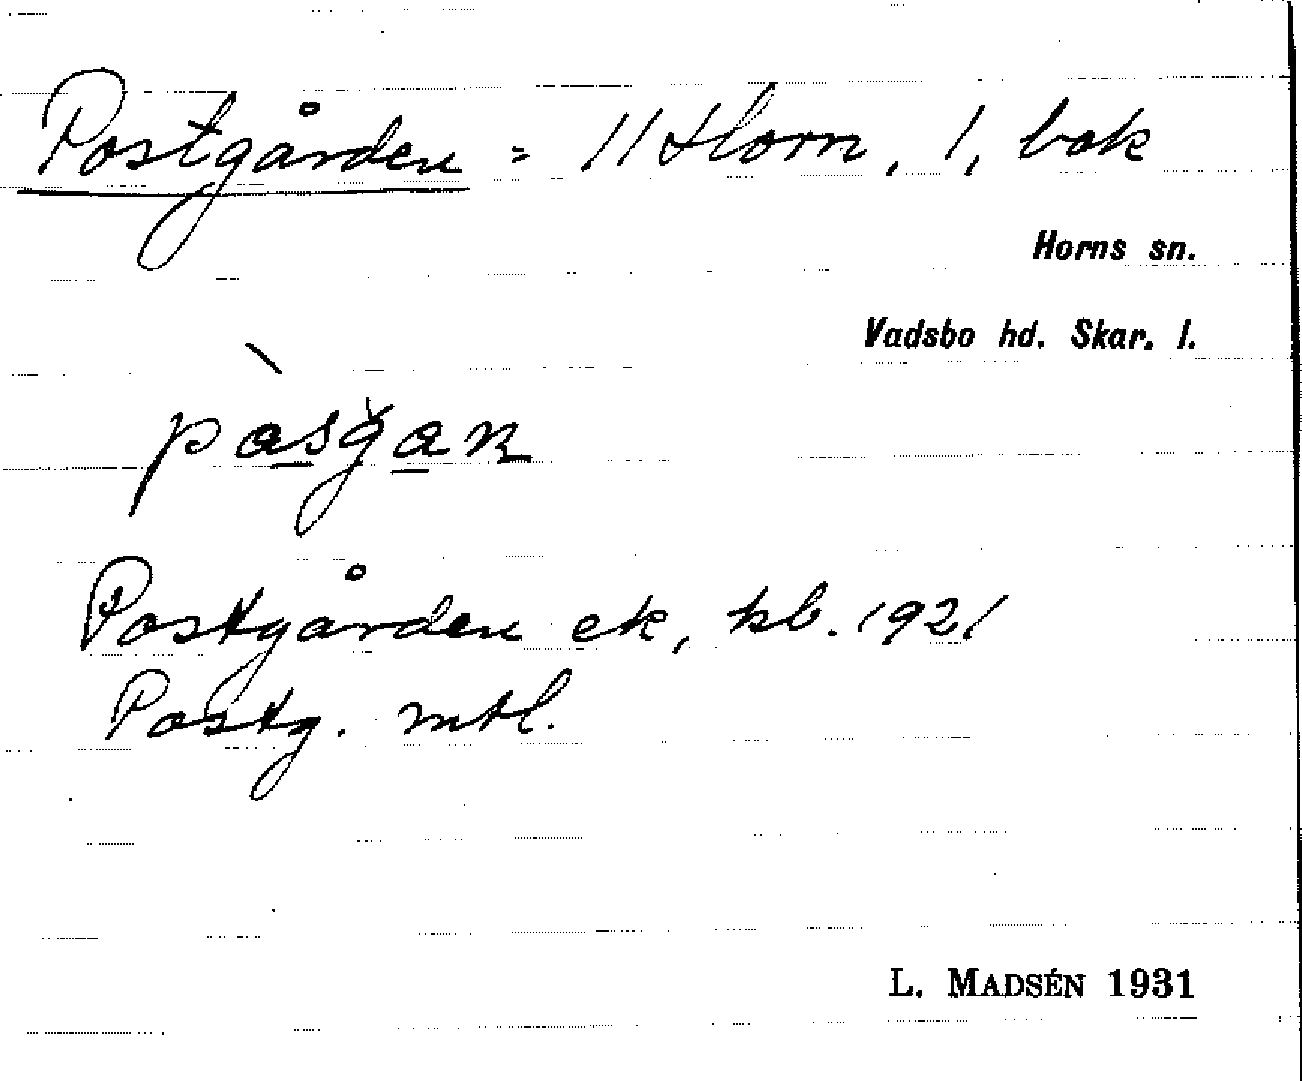 Postgården = 11 Horn, 1, bok
Horns sn.
Vadsbo hd. Skar. l.
Postgården ek, kb. 1921
Postg. mtl.
L. MADSÉN 1931